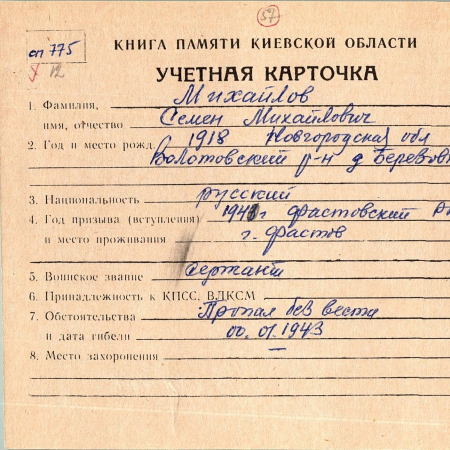 57
оп 775
У 12
КНИГА ПАМЯТИ КИЕВСКОЙ ОБЛАСТИ
УЧЕТНАЯ КАРТОЧКА
1. Фамилия, Михайлов
имя, отчество Семен Михайлович
2. Год и место рожд. 1918 Новгородская обл
Волотовский р-н д Березов
3. Национальность русский
4. Год призыва (вступления) 1941г Фастовский
и место проживания г. Фастов
5. Воинское звание Сержант
6. Принадлежность к КПСС, ВЛКСМ
7. Обстоятельства Пропал без вести
и дата гибели 00.01.1943
8. Место захоронения